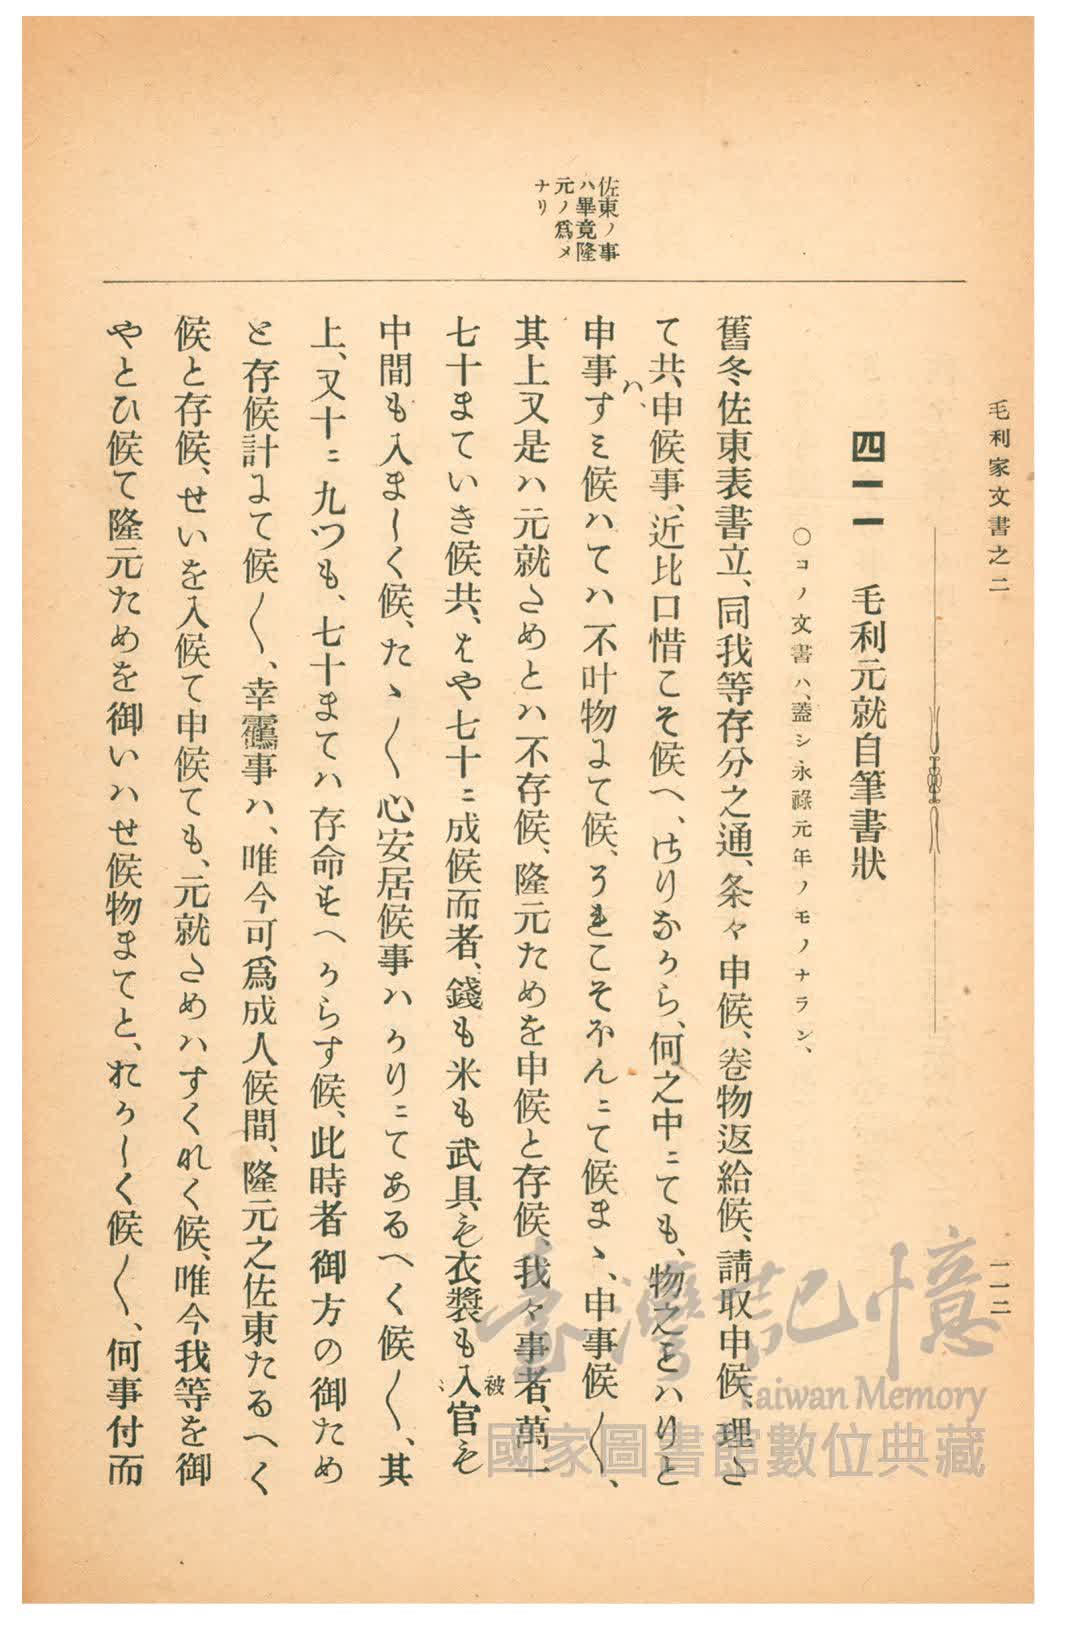 毛利家文書之二
一一二
四一一　毛利元就自筆書狀
○コノ文書ハ、蓋シ永祿元年ノモノナラン、
佐東ノ事
ハ畢竟隆
元ノ爲メ
ナリ
舊冬佐東表書立、同我等存分之通、条々申候、卷物返給候、請取申候、理さ
て共申候事、近比口惜こそ候へ、けりなから、何之中ニても、物之をハりと
ハ、
申事すミ候ハてハ不叶物にて候、うれこそほんニて候まゝ、申事候〳〵、
其上又是ハ元就さめとハ不存候、隆元ためを申候と存候、我々事者、萬一
七十まていき候共、はや七十ニ成候而者、錢も米も武具も衣裝も入官も
被
ミ
中間も入ましく候、たゝ〳〵心安居候事ハかりニてあるへく候〳〵、其
上、又十ニ九ツも、七十まてハ存命すへからす候、此時者御方の御ため
と存候計にて候〳〵、幸鶴事ハ、唯今可爲成人候間、隆元之佐東たるへく
候と存候、せいを入候て申候ても、元就さめハすくれく候、唯今我等を御
やとひ候て隆元ためを御いハせ候物まてと、おかしく候〳〵、何事付而
臺灣記憶
Taiwan Memory
國家圖書館數位典藏